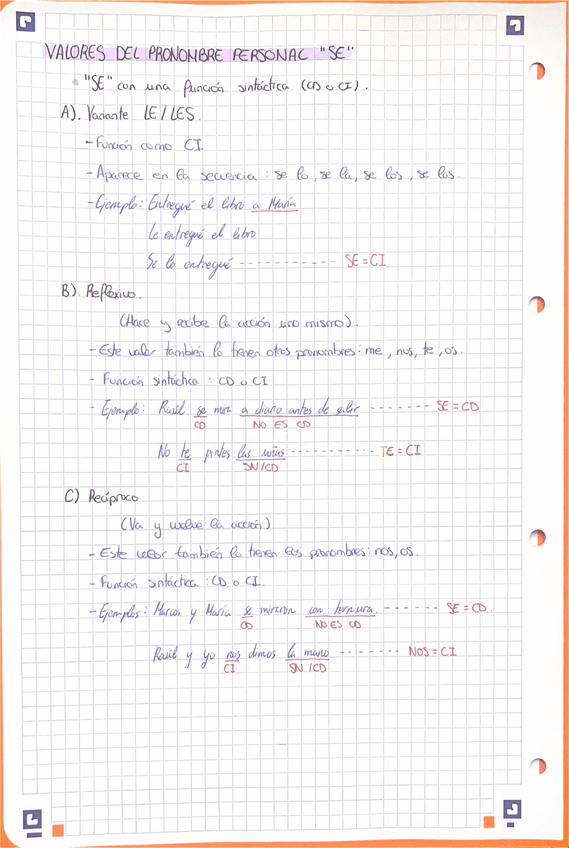 VALORES DEL PRONOMBRE PERSONAL "SE"
"SE" con una función sintáctica (CD o CI).
A). Variante LE/LES.
- Función como CI
- Aparece en la secuencia: se lo, se la, se los, se las.
- Ejemplo: Entregué el libro a María
Le entregué el libro
Se lo entregué ----------- SE=CI
B). Reflexivo.
(Hace y recibe la acción uno mismo).
- Este valor también lo tienen otros pronombres: me, nos, te, os.
- Función sintáctica: CD o CI
- Ejemplo: Raúl se mira a diario antes de salir ------- SE=CD
CD NO ES CD
No te pintes las uñas ---------- TE=CI
CI SN/CD
C) Recíproco
(Va y vuelve la acción)
- Este valor también lo tienen los pronombres: nos, os.
- Función sintáctica: CD o CI.
- Ejemplos: Marcos y María se miraron con ternura. ------ SE=CD.
CD NO ES CD
Raúl y yo nos dimos la mano ------- NOS=CI
CI SN/CD